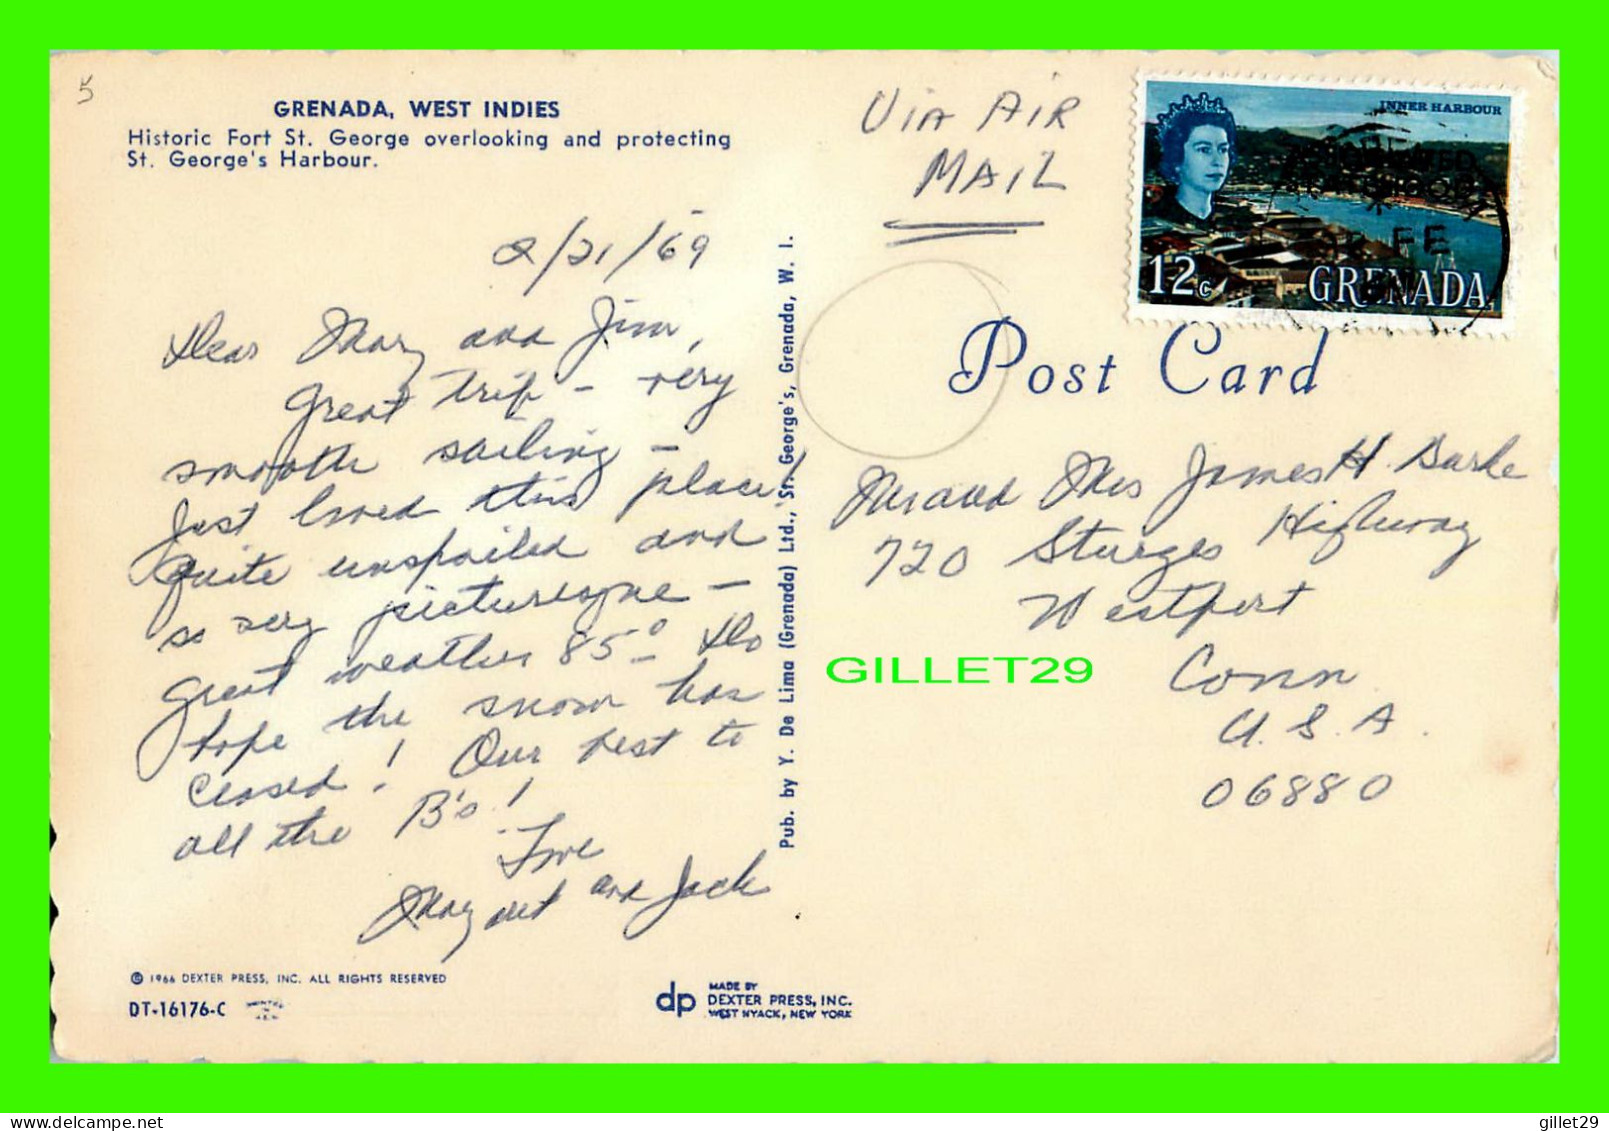 5
GRENADA, WEST INDIES
Historic Fort St. George overlooking and protecting
St. George's Harbour.
2/21/69
Dear Mary and Jim,
Great trip - very
smooth sailing -
Just loved this place!
Quite unspoiled and
so very picturesque -
great weather 85° Do
hope the snow has
ceased! Our best to
all the B's!
Love
Margaret and Jack
© 1966 DEXTER PRESS, INC. ALL RIGHTS RESERVED
DT-16176-C
dp MADE BY
DEXTER PRESS, INC.
WEST NYACK, NEW YORK
Pub. by Y. De Lima (Grenada) Ltd., St. George's, Grenada, W. I.
VIA AIR
MAIL
INNER HARBOUR
FE
12c GRENADA
Post Card
Mr and Mrs James H. Burke
720 Sturges Highway
Westport
Conn.
U.S.A.
06880
GILLET29
gillet29